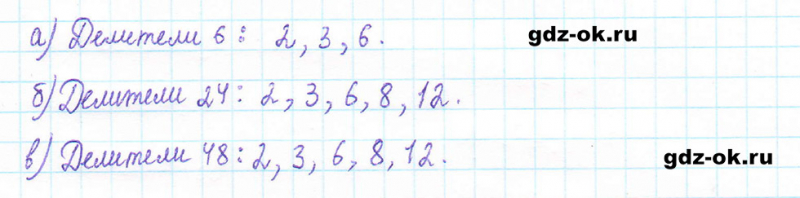 а) Делители 6: 2, 3, 6. gdz-ok.ru
б) Делители 24: 2, 3, 6, 8, 12.
в) Делители 48: 2, 3, 6, 8, 12.
gdz-ok.ru